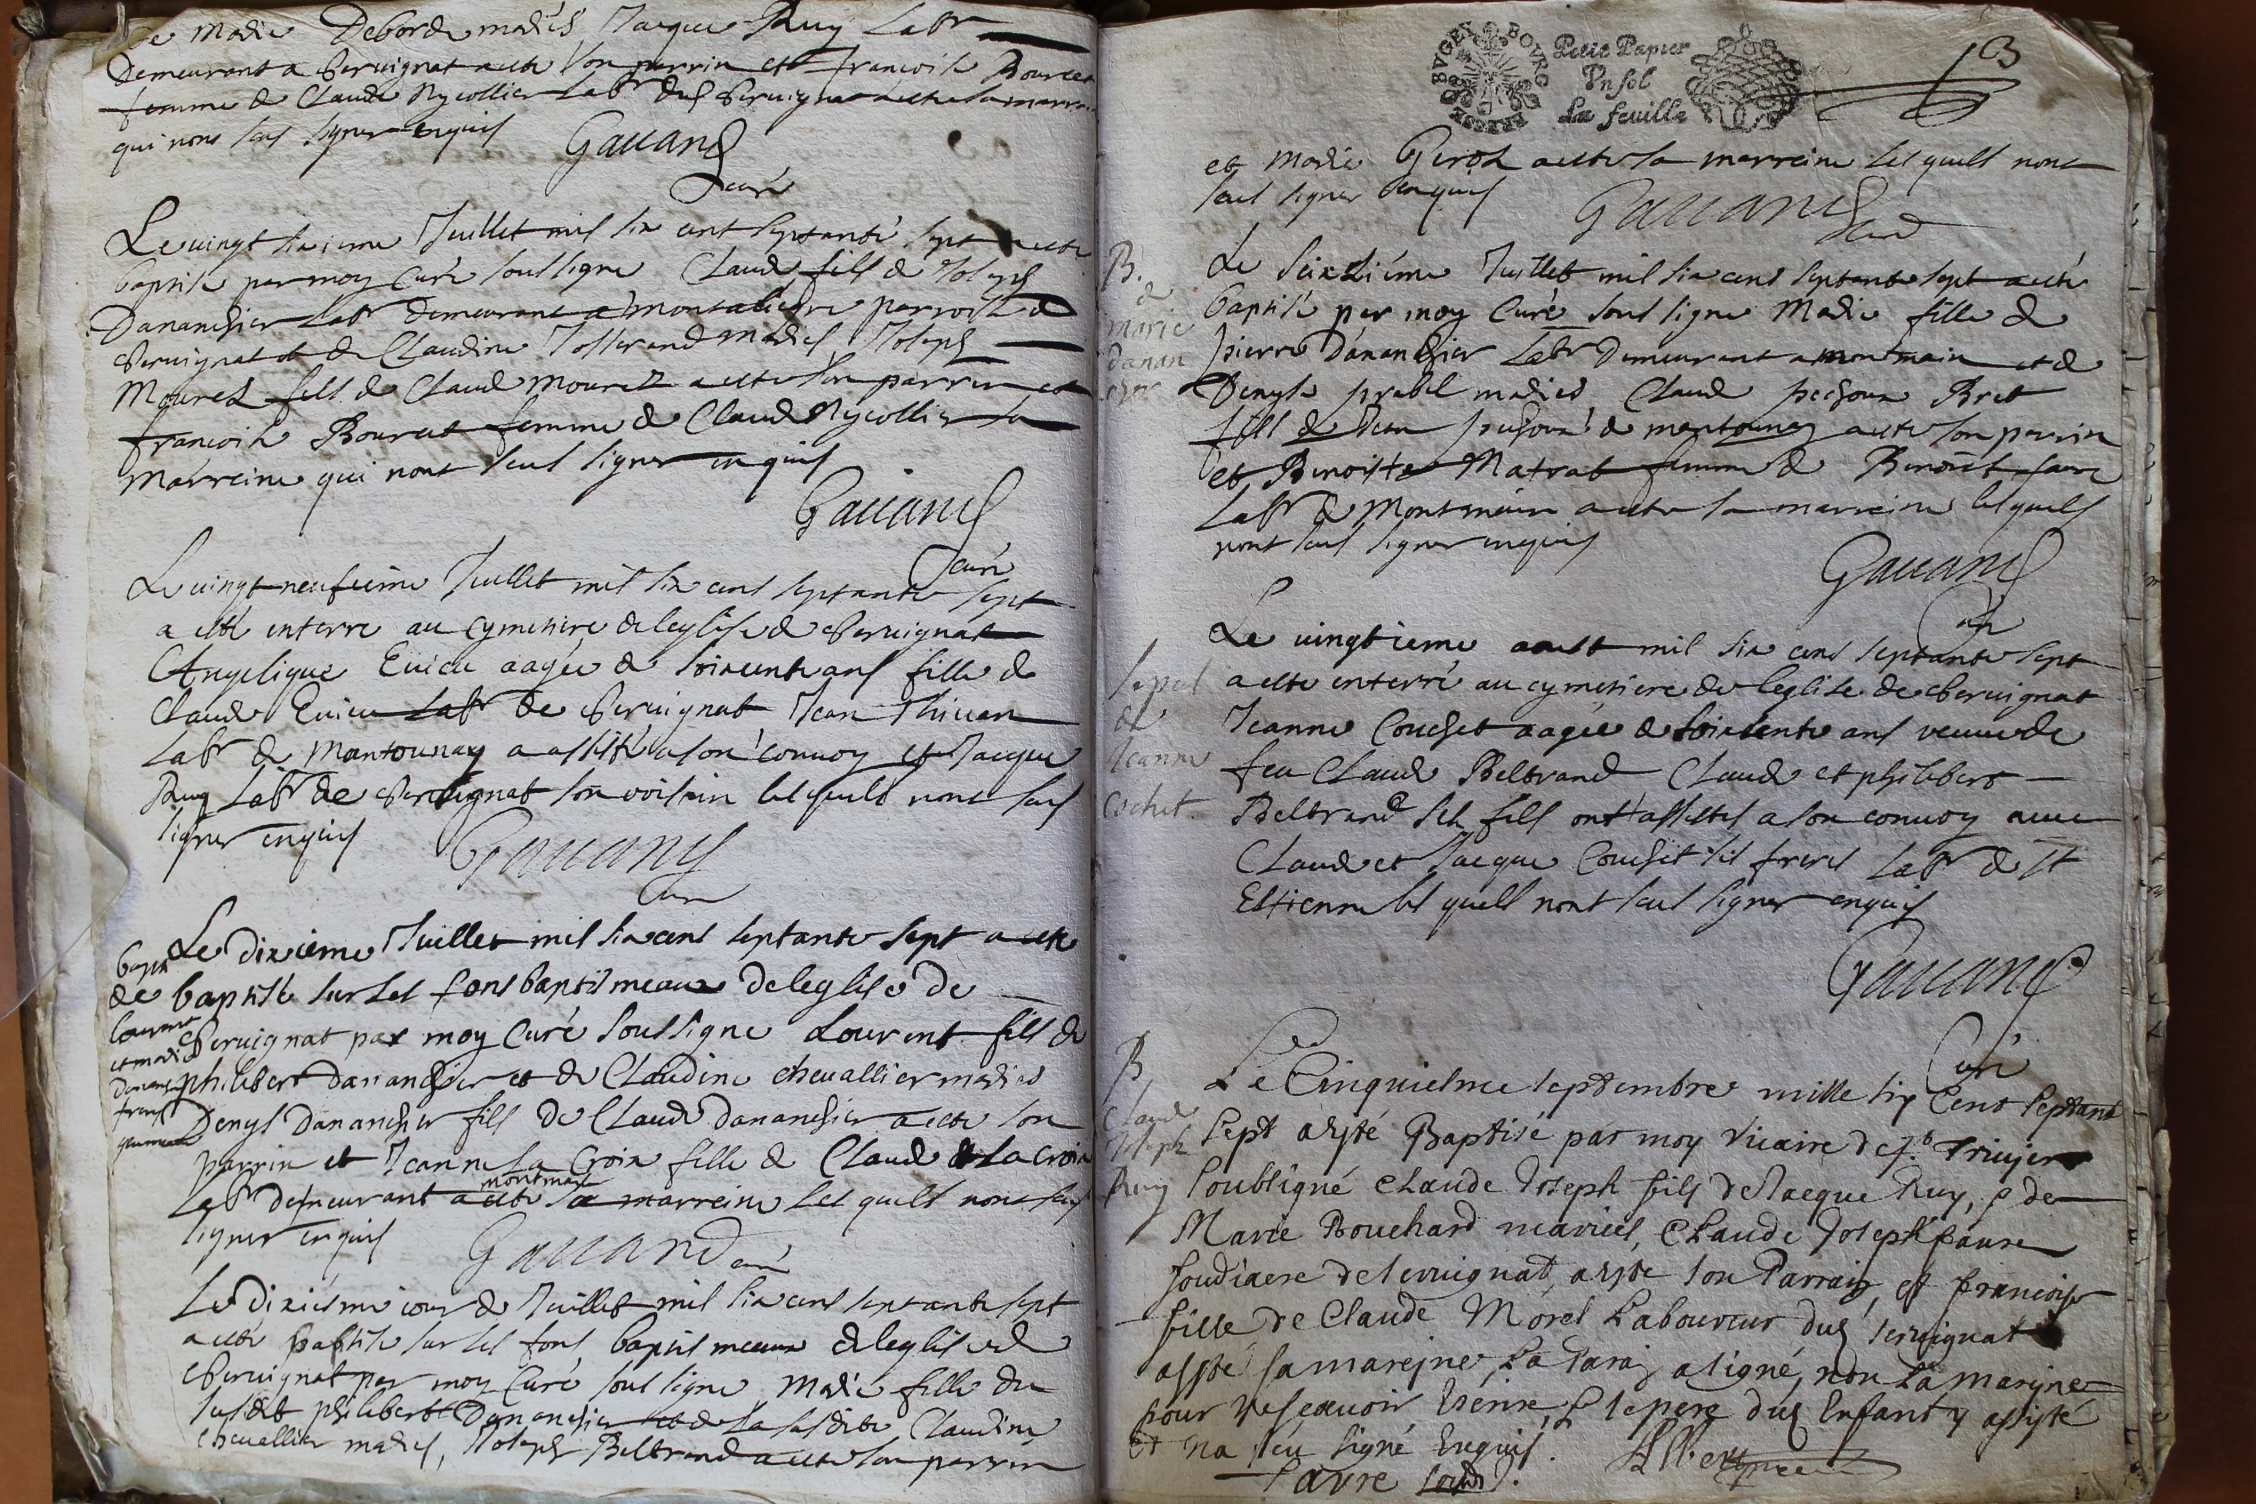 de Marie Deborde mariés Jacque Ruy Labr
Demeurant a Servignat a este son parrin et francoise Bourcet
femme de Claude Nycollier Labr dud Servignat a este sa marreine
qui nont sceu signer enquis
Gauand
curé
Le vingt sixieme Juillet mil six cent septante sept a esté
baptise par moy curé soussigne Claude fils de Joseph
Dananchier Labr Demeurant a montaliebre parroisse de
Servignat et de Claudine Josserand mariés Joseph
Mourel fils de Claude Mourel a esté son parrin et
francoise Bourcet femme de Claude Nycollier sa
Marreine qui nont sceu signer enquis
Gauand
curé
Le vingt neufieme Juillet mil six cens septante sept
a esté enterre au cymetiere de leglise de Servignat
Angelique Euieu aagée de soixente ans fille de
Claude Euieu Labr de Servignat Jean Thivan
Labr de Mantounay a assisté a son convoy et Jacque
Ruy Labr de Servignat son voisin lesquels nont sceu
signer enquis
Gauand
cure
Le dixieme Juillet mil six cens septante sept a esté
baptisé sur les fons baptismeaux de leglise de
Servignat par moy Curé soussigne Lourent fils de
philibert dananchier et de Claudine chevallier mariés
Denys Dananchier fils de Claude dananchier a esté son
parrin et Jeanne La Croix fille de Claude La Croix
montmain
Labr demeurant a este sa marreine Lesquels nont sceu
signer enquis
Gauand curé
bapt
de
Lourent
et marie
danan
freres
gemeaux
Le dixiesme jour de Juillet mil six cens septante sept
a esté baptise sur les fons baptismeaux de leglise de
Servignat par moy Curé soussigne Marie fille du
susdit philibert Dananchier et de la susdite Claudine
chevallier mariés, Joseph Beltrand a este son parrin
BVGEY BOVRG
Petit Papier
Vn sol
La feuille
et Marie Girod a este sa marreine lesquels nont
sceu signer enquis
Gauand
curé
B.
de
marie
danan
chier
Le seixiéme Juillet mil six cens septante sept a esté
baptisé par moy Curé soussigne Marie fille de
pierre Dananchier Labr Demeurant a montmain et de
Denyse prabel mariés Claude pechoux Bret
fils de Jean pechoux de mantounay a este son parrin
et Benoiste Matrat femme de Benoist faure
Labr de Montmain a esté sa marreine lesquels
nont sceu signer enquis
Gauand
curé
sepul
de
Jeanne
Cochet.
Le vingtieme aoust mil six cens septante sept
a este enterré au cymetiere de leglise de Servignat
Jeanne Couchet aagée de soixente ans veuve de
feu Claude Beltrand Claude et philibert
Beltrand ses fils ont assistes a son convoy avec
Claude et Jacque Couchet ses freres Labr de St
Estienne lesquels nont sceu signer enquis
Gauand
Curé
B
Claude
Joseph
Ruy
Le Cinquiesme septembre mille six Cent septante
sept a esté Baptisé par moy vicaire de St Trivier
soubsigné Claude Joseph fils de Jacque Ruy, & de
Marie Bouchard mariés, Claude Joseph faure
soudiacre de servignat, a esté son Parrain, et francoise
fille de Claude Morel Laboureur dud servignat
a esté sa mareine, Le Parain a signé, non La mareine
pour ne scavoir Escrire, & le pere dud Enfant y assisté
et na sceu signé Enquis.
favre soud.